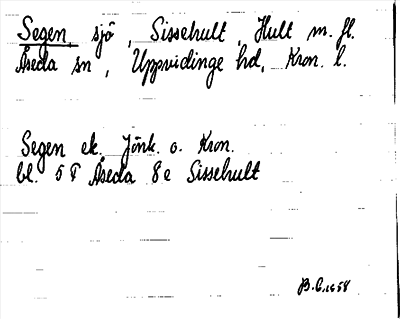 Segen, sjö, Sissehult, Hult m. fl.
Åseda sn, Uppvidinge hd, Kron. l.
Segen ek. Jönk. o. Kron.
bl. 5 F Åseda 8 e Sissehult
B.C. 1658